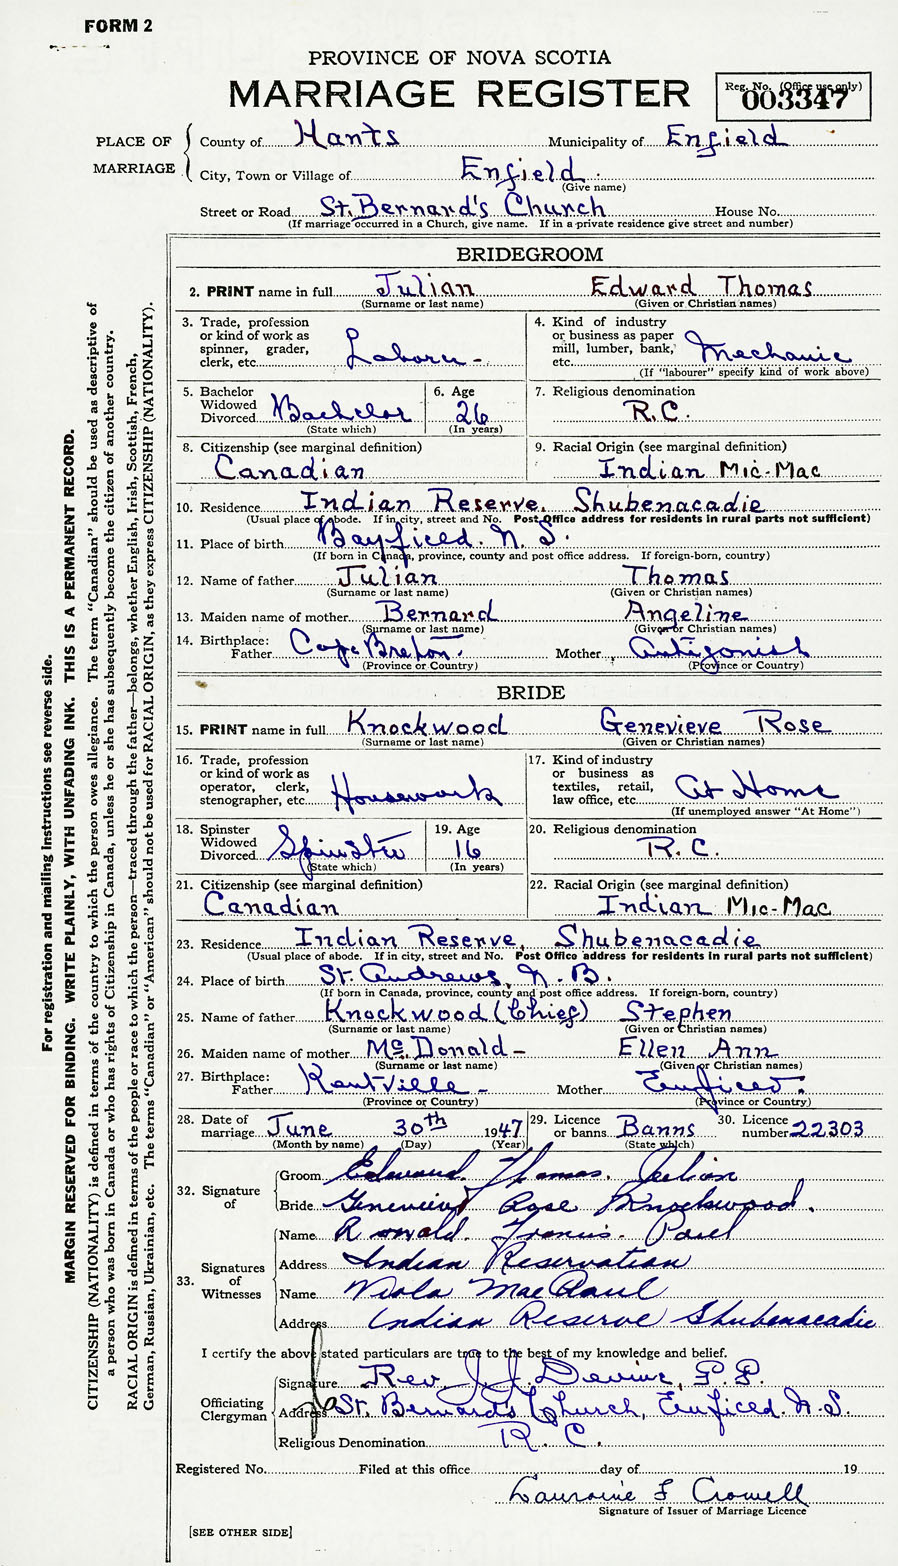 FORM 2
PROVINCE OF NOVA SCOTIA
MARRIAGE REGISTER
Reg. No. (Office use only)
003347
PLACE OF MARRIAGE
County of Hants Municipality of Enfield
City, Town or Village of Enfield
(Give name)
Street or Road St. Bernard's Church House No.
(If marriage occurred in a Church, give name. If in a private residence give street and number)
BRIDEGROOM
2. PRINT name in full Julian Edward Thomas
(Surname or last name) (Given or Christian names)
3. Trade, profession or kind of work as spinner, grader, clerk, etc. Laborer -
4. Kind of industry or business as paper mill, lumber, bank, etc. Mechanic
(If "labourer" specify kind of work above)
5. Bachelor Widowed Divorced Bachelor
(State which)
6. Age 26
(In years)
7. Religious denomination R.C.
8. Citizenship (see marginal definition) Canadian
9. Racial Origin (see marginal definition) Indian Mic-Mac
10. Residence Indian Reserve, Shubenacadie
(Usual place of abode. If in city, street and No. Post Office address for residents in rural parts not sufficient)
11. Place of birth Bayfield. N. S.
(If born in Canada, province, county and post office address. If foreign-born, country)
12. Name of father Julian Thomas
(Surname or last name) (Given or Christian names)
13. Maiden name of mother Bernard Angeline
(Surname or last name) (Given or Christian names)
14. Birthplace: Father Cape Breton. Mother Antigonish
(Province or Country) (Province or Country)
BRIDE
15. PRINT name in full Knockwood Genevieve Rose
(Surname or last name) (Given or Christian names)
16. Trade, profession or kind of work as operator, clerk, stenographer, etc. Housework
17. Kind of industry or business as textiles, retail, law office, etc. At Home
(If unemployed answer "At Home")
18. Spinster Widowed Divorced Spinster
(State which)
19. Age 16
(In years)
20. Religious denomination R.C.
21. Citizenship (see marginal definition) Canadian
22. Racial Origin (see marginal definition) Indian Mic-Mac
23. Residence Indian Reserve, Shubenacadie
(Usual place of abode. If in city, street and No. Post Office address for residents in rural parts not sufficient)
24. Place of birth St. Andrews, N. B.
(If born in Canada, province, county and post office address. If foreign-born, country)
25. Name of father Knockwood (Chief) Stephen
(Surname or last name) (Given or Christian names)
26. Maiden name of mother McDonald - Ellen Ann
(Surname or last name) (Given or Christian names)
27. Birthplace: Father Kentville - Mother Enfield.
(Province or Country) (Province or Country)
28. Date of marriage June 30th 1947
(Month by name) (Day) (Year)
29. Licence or banns Banns
(State which)
30. Licence number 22303
32. Signature of
Groom Edward. Thomas. Julian
Bride Genevieve Rose Knockwood.
33. Signatures of Witnesses
Name Ronald. Francis. Paul
Address Indian Reservation
Name Viola MacPaul
Address Indian Reserve Shubenacadie
I certify the above stated particulars are true to the best of my knowledge and belief.
Officiating Clergyman
Signature Rev J. J. Devine, P.P.
Address St. Bernard's Church, Enfield. N.S.
Religious Denomination R. C.
Registered No. Filed at this office day of 19
Lauraine F Crowell
Signature of Issuer of Marriage Licence
[SEE OTHER SIDE]
For registration and mailing instructions see reverse side.
MARGIN RESERVED FOR BINDING. WRITE PLAINLY, WITH UNFADING INK. THIS IS A PERMANENT RECORD.
CITIZENSHIP (NATIONALITY) is defined in terms of the country to which the person owes allegiance. The term "Canadian" should be used as descriptive of
a person who was born in Canada or who has rights of Citizenship in Canada, unless he or she has subsequently become the citizen of another country.
RACIAL ORIGIN is defined in terms of the people or race to which the person—traced through the father—belongs, whether English, Irish, Scottish, French,
German, Russian, Ukrainian, etc. The terms "Canadian" or "American" should not be used for RACIAL ORIGIN, as they express CITIZENSHIP (NATIONALITY).